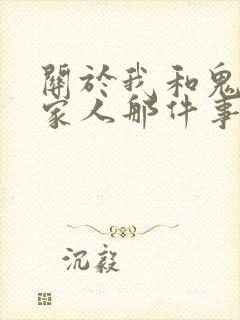 關於我和鬼
家人那件事
沉毅